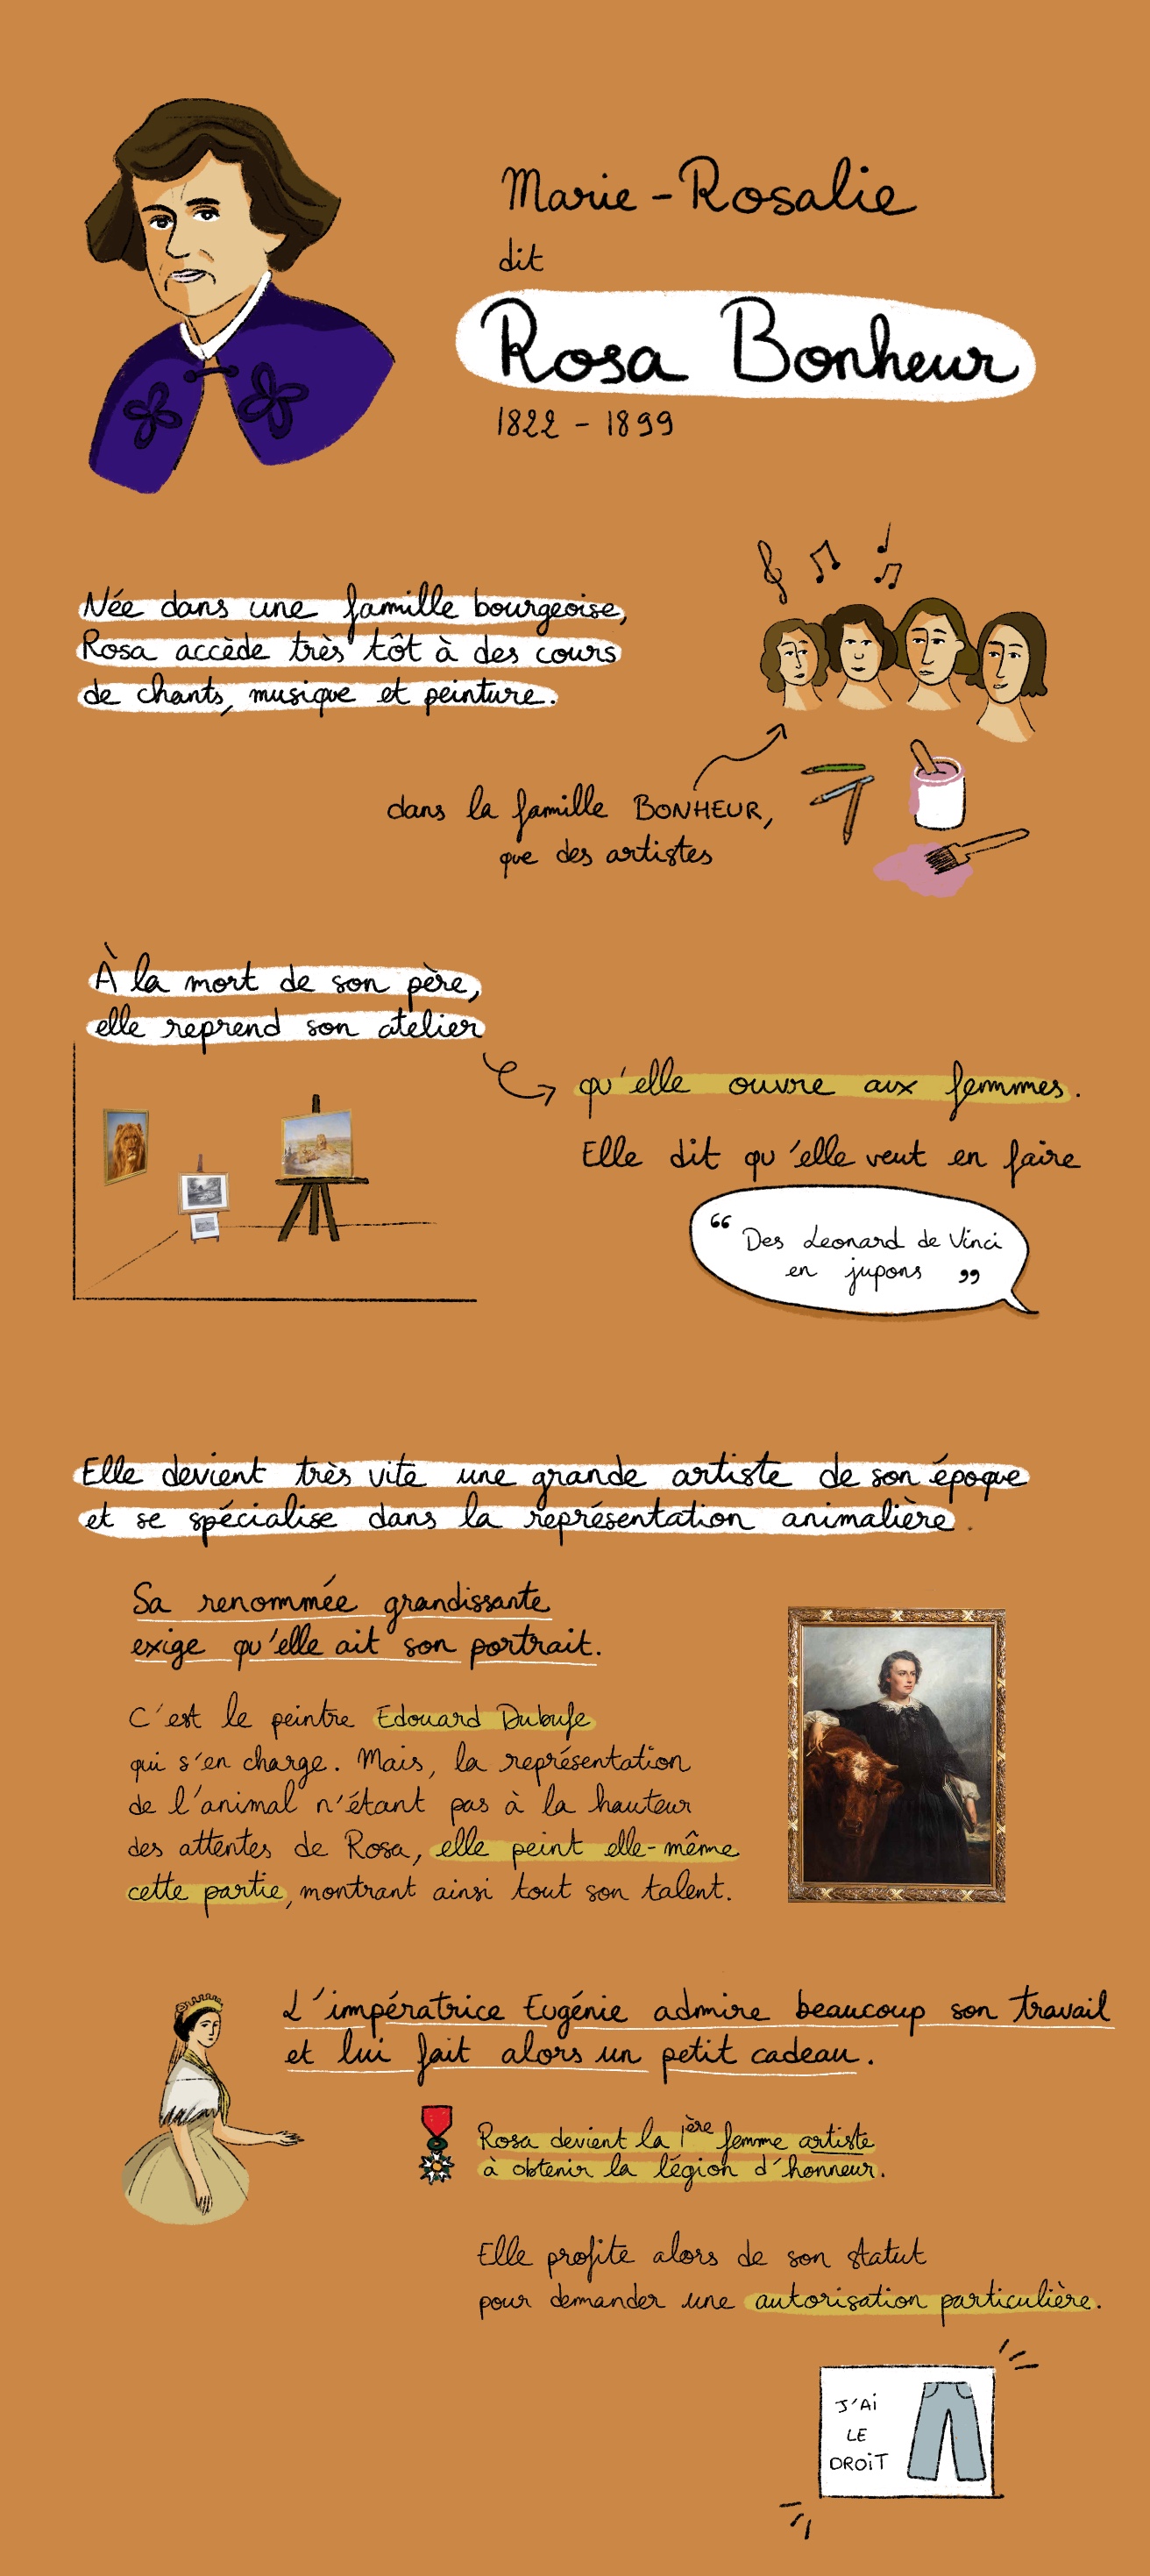 Marie-Rosalie
dit
Rosa Bonheur
1822 - 1899
Née dans une famille bourgeoise,
Rosa accède très tôt à des cours
de chants, musique et peinture.
dans la famille BONHEUR,
que des artistes
À la mort de son père,
elle reprend son atelier
qu'elle ouvre aux femmes.
Elle dit qu'elle veut en faire
“ Des Leonard de Vinci
en jupons ”
Elle devient très vite une grande artiste de son époque
et se spécialise dans la représentation animalière.
Sa renommée grandissante
exige qu'elle ait son portrait.
C'est le peintre Edouard Dubufe
qui s'en charge. Mais, la représentation
de l'animal n'étant pas à la hauteur
des attentes de Rosa, elle peint elle-même
cette partie, montrant ainsi tout son talent.
L'impératrice Eugénie admire beaucoup son travail
et lui fait alors un petit cadeau.
Rosa devient la 1ère femme artiste
à obtenir la légion d'honneur.
Elle profite alors de son statut
pour demander une autorisation particulière.
J'Ai
LE
DROiT